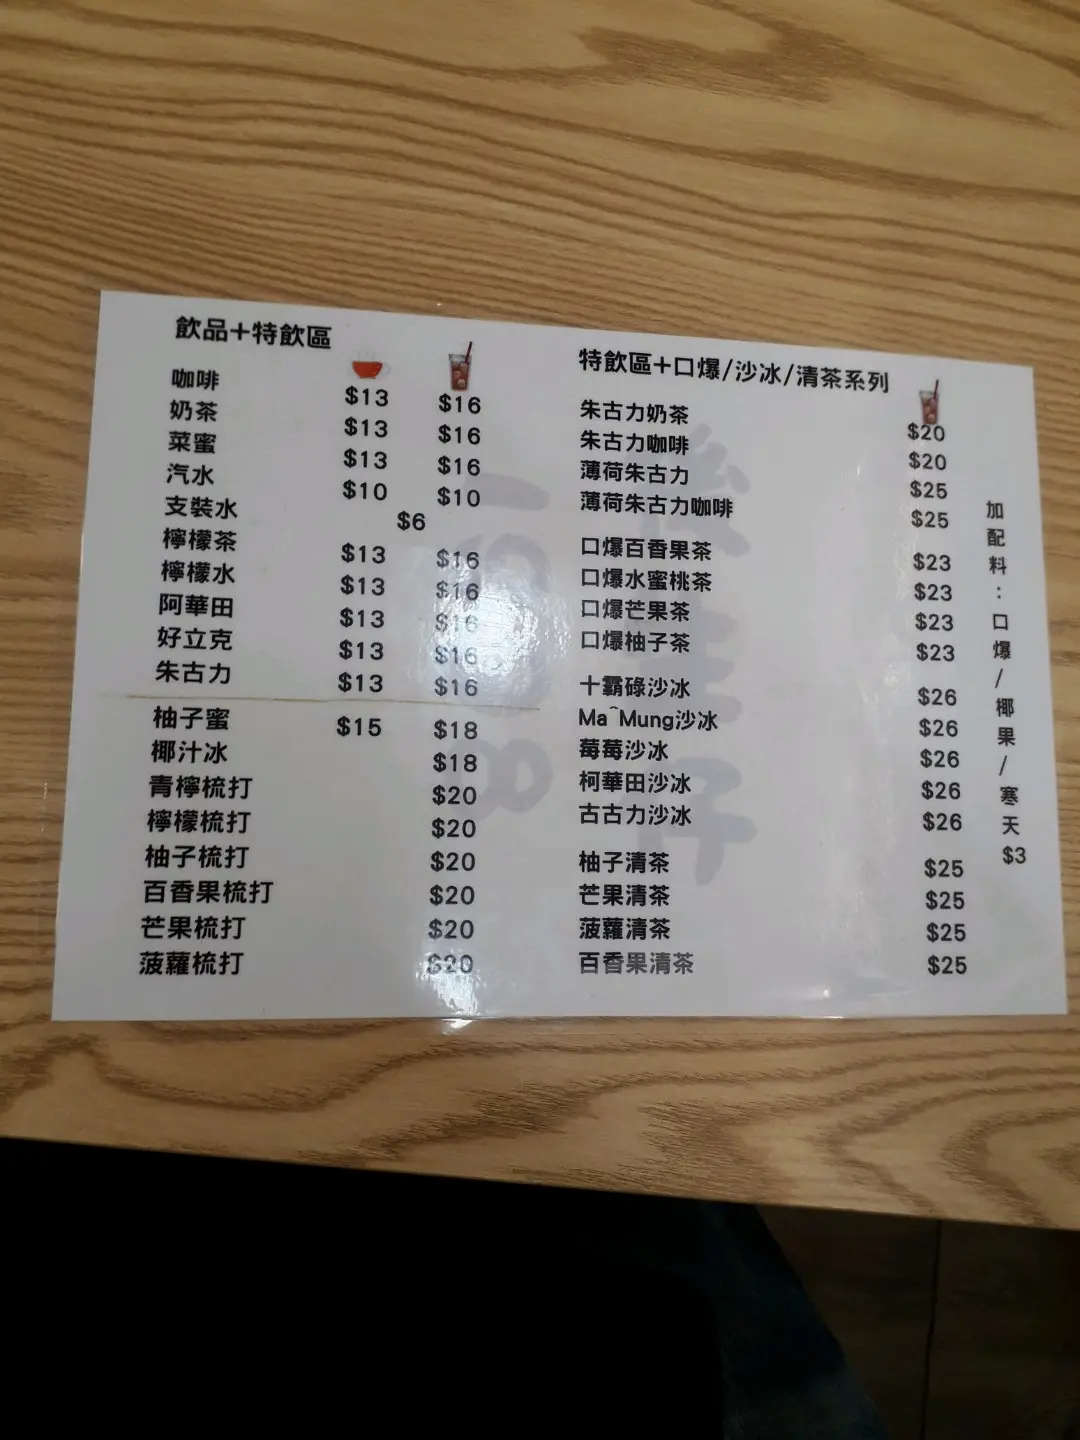 飲品+特飲區
咖啡 $13 $16
奶茶 $13 $16
菜蜜 $13 $16
汽水 $10 $10
支裝水 $6
檸檬茶 $13 $16
檸檬水 $13 $16
阿華田 $13 $16
好立克 $13 $16
朱古力 $13 $16
柚子蜜 $15 $18
椰汁冰 $18
青檸梳打 $20
檸檬梳打 $20
柚子梳打 $20
百香果梳打 $20
芒果梳打 $20
菠蘿梳打 $20
特飲區+口爆/沙冰/清茶系列
朱古力奶茶 $20
朱古力咖啡 $20
薄荷朱古力 $25
薄荷朱古力咖啡 $25
口爆百香果茶 $23
口爆水蜜桃茶 $23
口爆芒果茶 $23
口爆柚子茶 $23
十霸碌沙冰 $26
Ma~Mung沙冰 $26
莓莓沙冰 $26
柯華田沙冰 $26
古古力沙冰 $26
柚子清茶 $25
芒果清茶 $25
菠蘿清茶 $25
百香果清茶 $25
加配料：口爆/椰果/寒天 $3